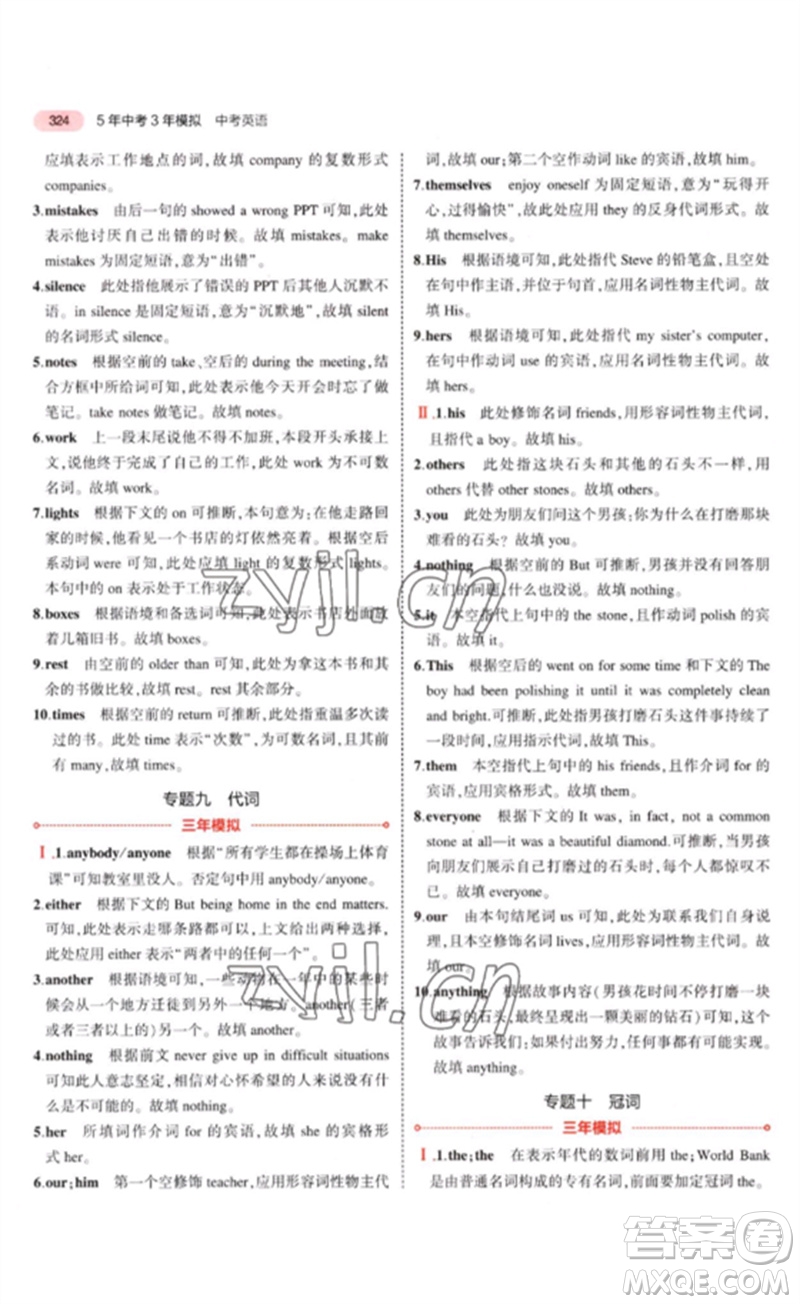 324 5年中考3年模拟 中考英语
应填表示工作地点的词,故填 company 的复数形式
companies。
3.mistakes 由后一句的 showed a wrong PPT 可知,此处
表示他讨厌自己出错的时候。故填 mistakes。make
mistakes 为固定短语,意为“出错”。
4.silence 此处指他展示了错误的 PPT 后其他人沉默不
语。in silence 是固定短语,意为“沉默地”,故填 silent
的名词形式 silence。
5.notes 根据空前的 take、空后的 during the meeting,结
合方框中所给词可知,此处表示他今天开会时忘了做
笔记。take notes 做笔记。故填 notes。
6.work 上一段末尾说他不得不加班,本段开头承接上
文,说他终于完成了自己的工作,此处 work 为不可数
名词。故填 work。
7.lights 根据下文的 on 可推断,本句意为:在他走路回
家的时候,他看见一个书店的灯依然亮着。根据空后
系动词 were 可知,此处应填 light 的复数形式 lights。
本句中的 on 表示处于工作状态。
8.boxes 根据语境和备选词可知,此处表示书店外面放
着几箱旧书。故填 boxes。
9.rest 由空前的 older than 可知,此处为拿这本书和其
余的书做比较,故填 rest。rest 其余部分。
10.times 根据空前的 return 可推断,此处指重温多次读
过的书。此处 time 表示“次数”,为可数名词,其前
有 many,故填 times。
专题九 代词
三年模拟
Ⅰ.1.anybody/anyone 根据“所有学生都在操场上体育
课”可知教室里没人。否定句中用 anybody/anyone。
2.either 根据下文的 But being home in the end matters.
可知,此处表示走哪条路都可以,上文给出两种选择,
此处应用 either 表示“两者中的任何一个”。
3.another 根据语境可知,一些动物在一年中的某些时
候会从一个地方迁徙到另一个地方。another(三者
或者三者以上的)另一。故填 another。
4.nothing 根据前文 never give up in difficult situations
可知人意志坚定,相对心怀希望的人来说没有什么可
怕的。故填 nothing。
5.her 所填词作介词 for 的宾语,故填 she 的宾格形
式 her。
6.our;him 第一个空修饰 teacher,应用形容词性物主代
词,故填 our;第二个空作动词 like 的宾语,故填 him。
7.themselves enjoy oneself 为固定短语,意为“玩得开
心,过得愉快”,故此处应用 they 的反身代词形式。故
填 themselves。
8.His 根据语境可知,此处指代 Steve 的铅笔盒,且空处
在句中作主语,并位于句首,应用名词性物主代词。故
填 His。
9.hers 根据语境可知,此处指代 my sister's computer,
在句中作动词 use 的宾语,应用名词性物主代词,故
填 hers。
Ⅱ.1.his 此处修饰名词 friends,用形容词性物主代词,
且指代 a boy。故填 his。
2.others 此处指这块石头和其他的石头不一样,用
others 代替 other stones。故填 others。
3.you 此处为朋友们问这个男孩:你为什么在打磨那块
难看的石头? 故填 you。
4.nothing 根据空前的 But 可推断,男孩并没有回答朋
友们的问题,什么也没有说。故填 nothing。
5.it 本空指代上句中的 the stone,且作动词 polish 的宾
语。故填 it。
6.This 根据空后的 went on for some time 和下文的 The
boy had been polishing it until it was completely clean
and bright.可知,此处指男孩打磨石头这件事情持续了
一段时间,应用指示代词。故填 This。
7.them 本空指代上句中的 his friends,且作介词 for 的
宾语,应用宾格形式。故填 them。
8.everyone 根据下文的 It was, in fact, not a common
stone at all—it was a beautiful diamond.可推断,当男孩
向朋友们展示自己打磨过的石头时,每个人都惊叹不
已。故填 everyone。
9.our 由本句结尾词 us 可知,此处为联系我们自身说
理,且本空修饰名词 lives,应用形容词性物主代词,故
填 our。
10.anything 根据故事内容(男孩花时间不停打磨一块
难看的石头,最终呈现出一颗美丽的钻石)可知,这个
故事告诉我们:如果努力,我们可以做成任何事。
故填 anything。
专题十 冠词
三年模拟
Ⅰ.1.the;the 在表示年代的数词前用 the;World Bank
是由普通名词构成的专有名词,前面要加定冠词 the。
zyjl.cn
zyjl.cn
答案圈
MXQE.COM